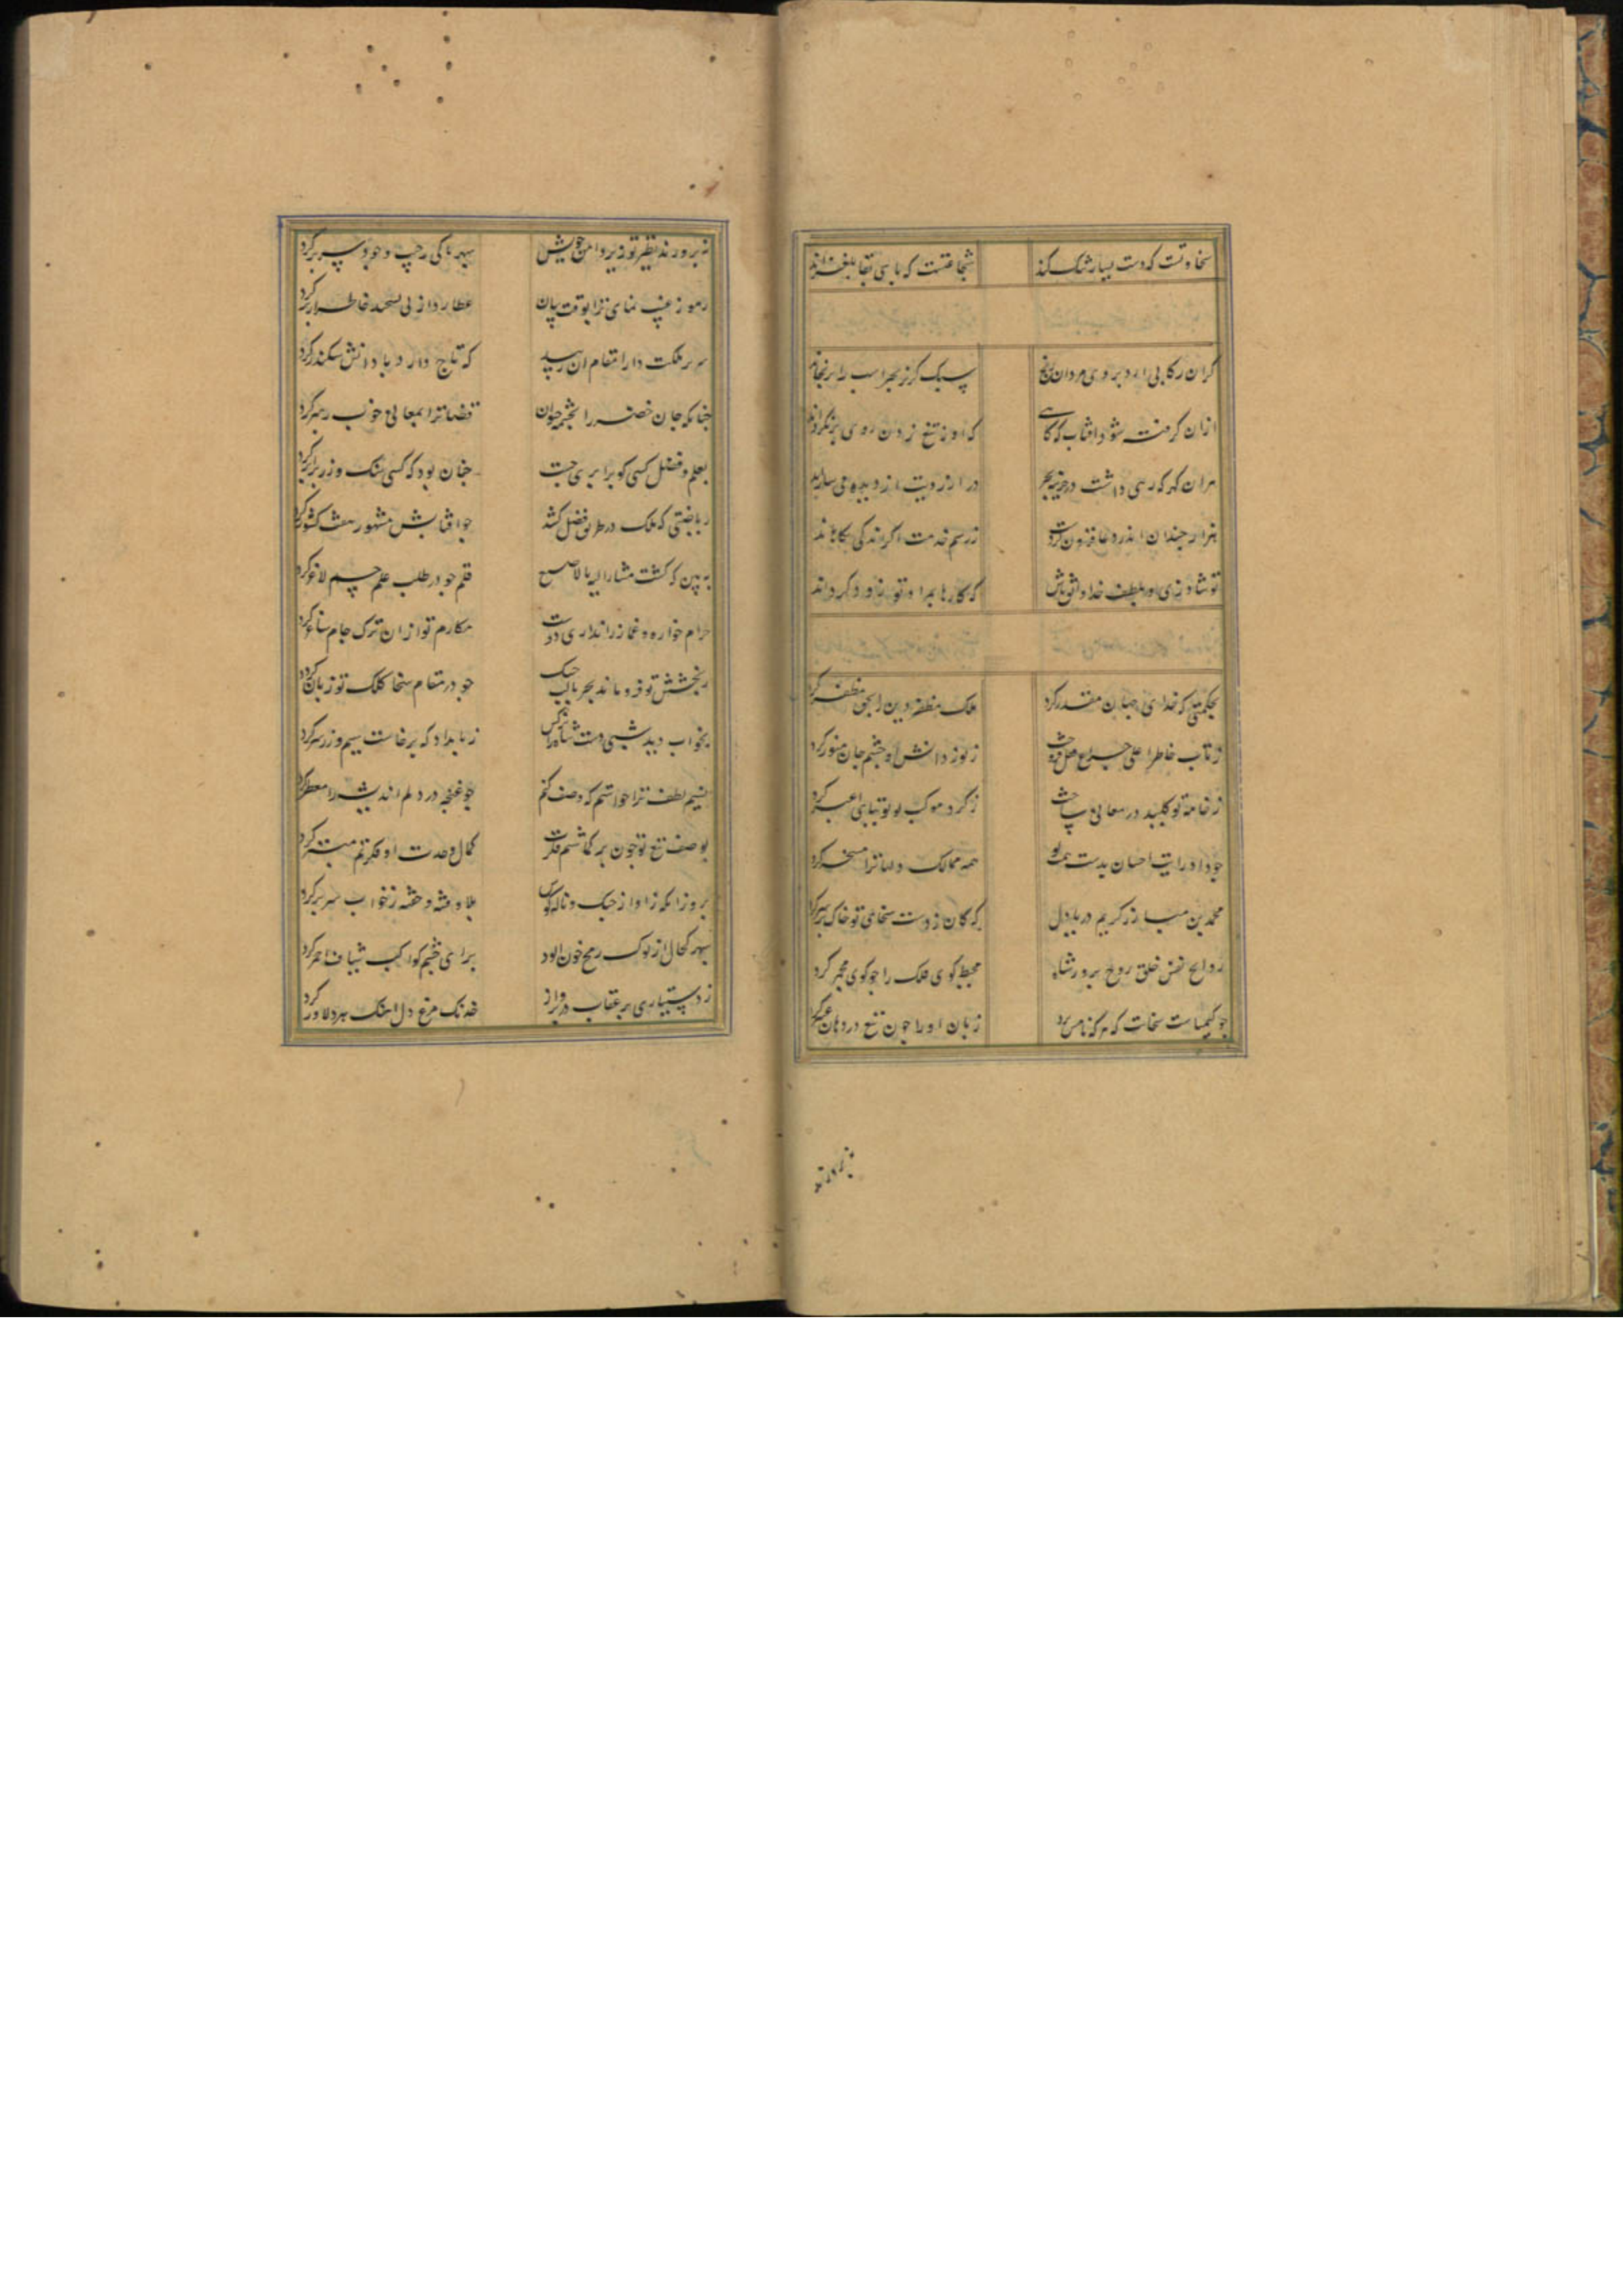 سخاوتست که دست یسار تنک کند شجاعتست که پای بقا بلغزاند
کران رکابی اید بروی مردان رنج سبک کریز بهر اسب را برنجاند
ازان کرفته شود افتاب که کاهی که او ز تیغ زدن روی برنکرداند
هران کهر که رهی داشت در خزینه بحر در ارزویت از دیده می
هزار چندان اندر دعا فزون کردست ز رسم خدمت اکر اندکی بکاهاند
تو شاد زی و بلطف خدا واثق باش که کارها بمراد تو زود کرداند
بحکمتی که خدای جهان مقدر کرد ملک مظفر دین را بحق مظفر کرد
ز تاب خاطر اعلی چراغ عقل فروخت ز نور دانش او چشم جان منور کرد
ز خامه تو کلید در معانی ساخت ز کرد موکب او توتیای اغبر کرد
چو داد رایت احسان بدست همت او همه ممالک دلها ترا مسخر کرد
محمد بن مبارز کریم دریا دل که کان ز دست سخای تو خاک بر سر کرد
روایح نفس خلق روح پرور شاه محیط کوی فلک را چو کوی مجمر کرد
چو کیمیاست سخات که هر که نامش برد زبان او را چون تیغ در دهان زر کرد
نه پرورند نظیر تو زیر دامن خویش سپهر هاکی رچپ و چو سر بر کرد
رموز غیب نمای ترا بوقت بیان عطارد از پی خاطر از بر کرد
سریر ملکت دارا مقام ان رسید که تاج دارد و با دانش سکندر کرد
چنانکه جان خضر را بچشمه حیوان قضا ترا بمعانی خوب رهبر کرد
بعلم و فضل کسی کو برابری جست چنان بود که کسی سنک و زر برابر کرد
ریاضتی که ملک در طریق فضل کشد چو افتابش مشهور هفت کشور کرد
ببین که کشت مشار الیه بالاصبع قلم چو در طلب علم جسم لاغر کرد
حرام خواره و غماز را نداری دوست مکارم تو ازان ترک جام ساغر کرد
ز بخشش تو فرو ماند بحر با لب خشک چو در مقام سخا کلک تو زبان تر کرد
بخواب دید شبی دست شاه را نرکس ز بامداد که برخاست سیم و زر سر کرد
نسیم لطف ترا خواستم که وصف کنم چو غنچه در دلم اندیشه را معطر کرد
بوصف تیغ تو چون برکماشتم فکرت کمال حدت او فکرتم مبتر کرد
بروز انکه ز اواز جنک و ناله کوس بلا و فتنه و خفته ز خواب سر بر کرد
سپهر کحال از نوک رمح خون الود برای چشم کواکب شیاف احمر کرد
ز دستیاری پر عقاب در پرواز خدنک مرغ دل اهنک هر دلاور کرد